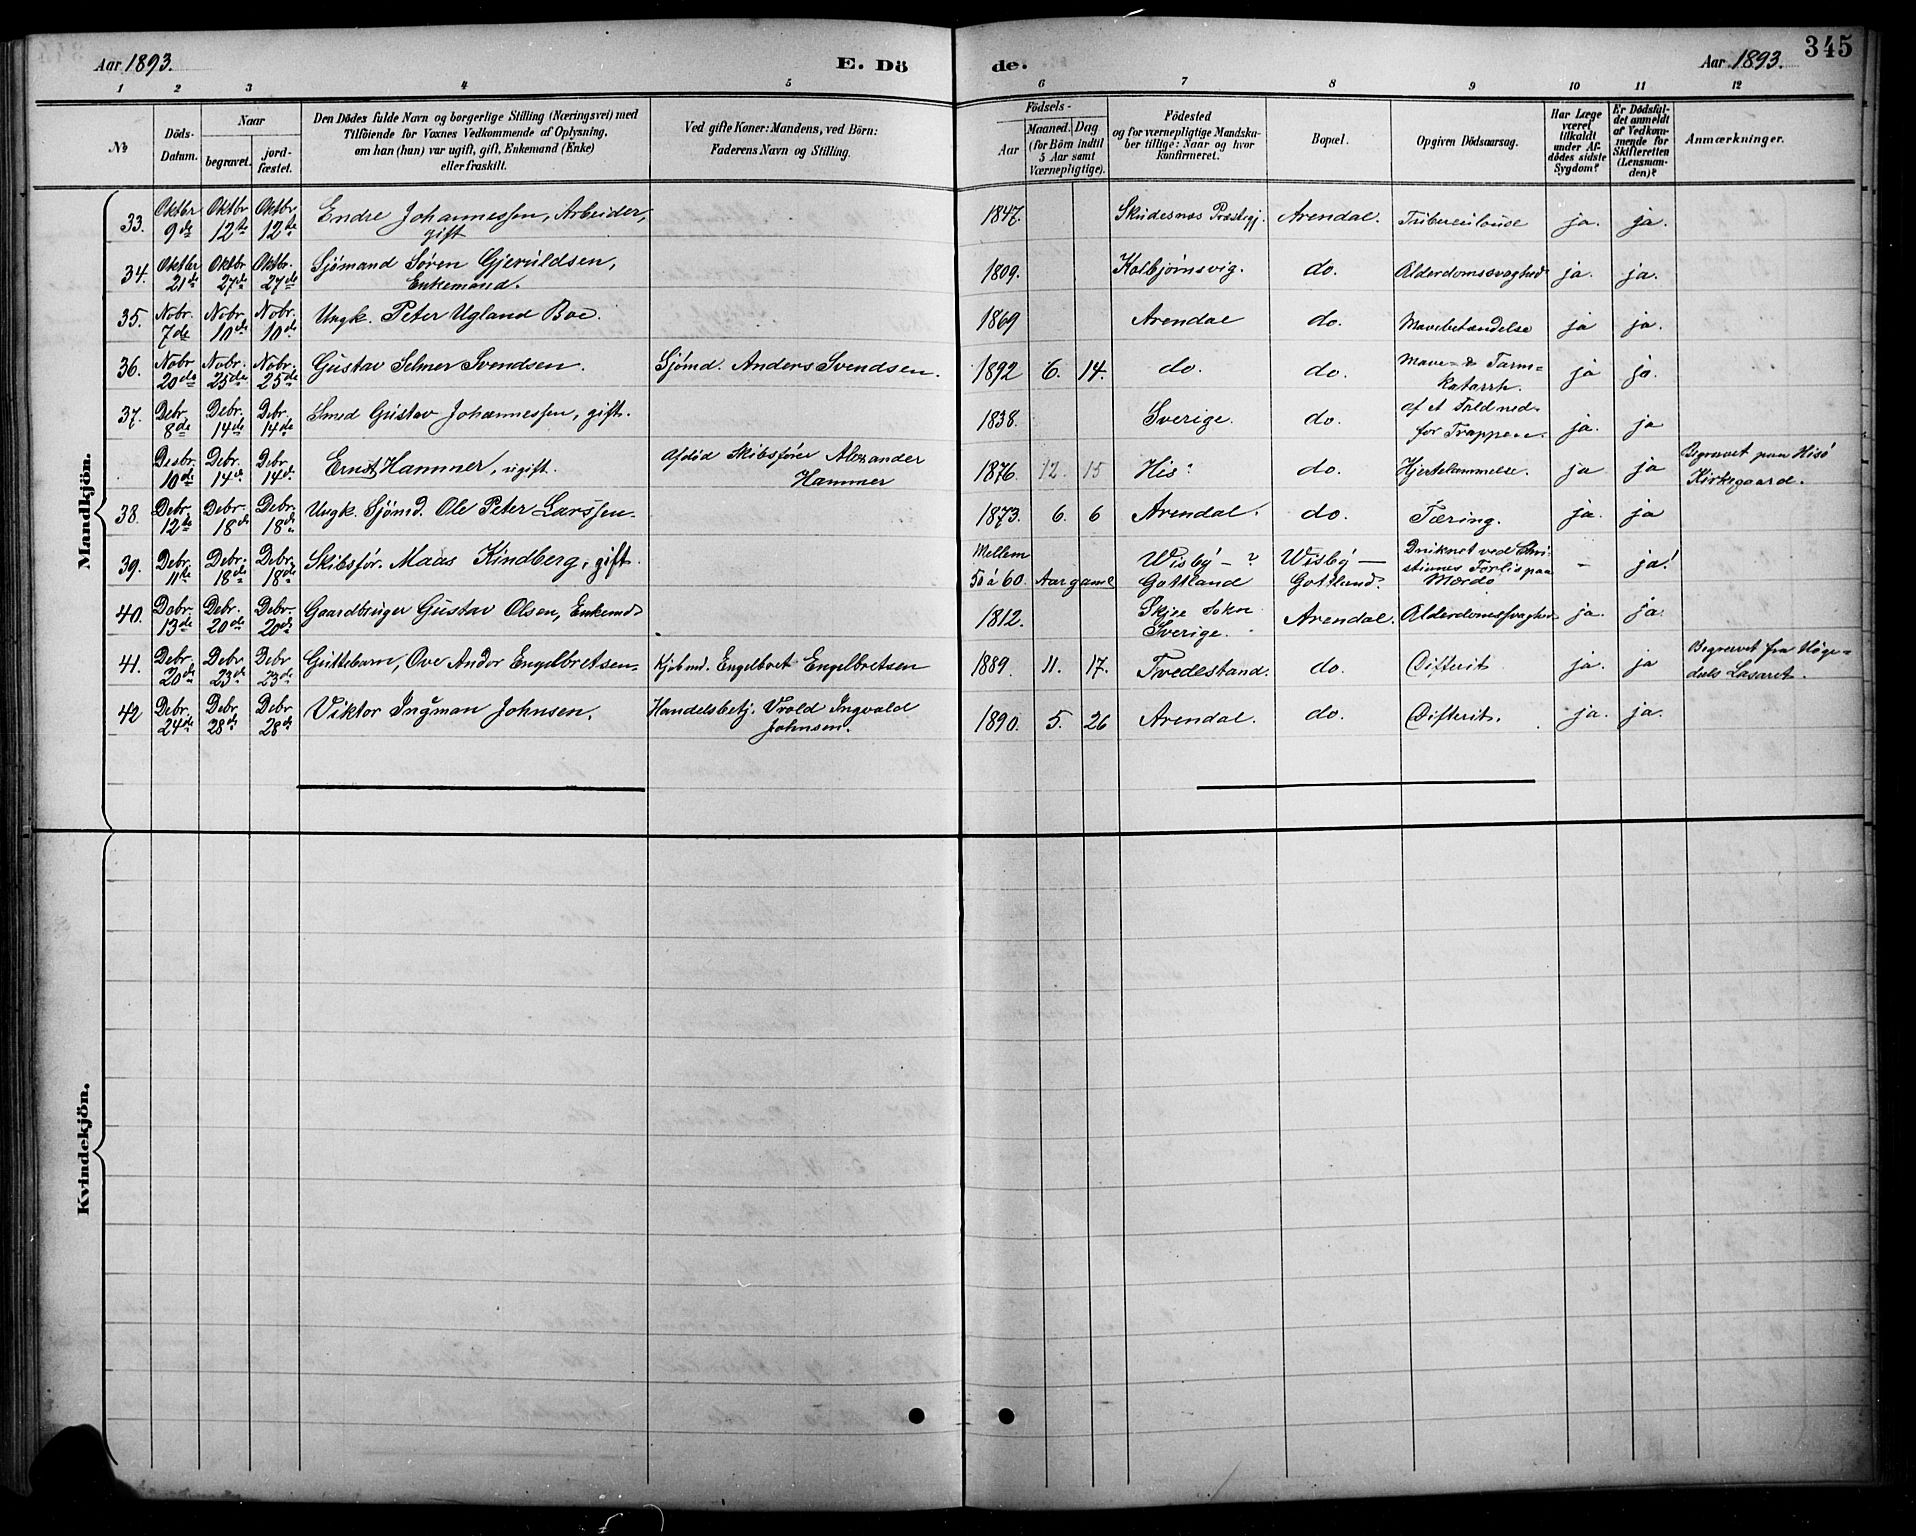 Aar 1893.
E. Dö
de.
Aar 1893.
345
1 2 3 4 5 6 7 8 9 10 11 12
No
Döds-
Datum.
Naar
begravet.
jord-
fæstet.
Den Dödes fulde Navn og borgerlige Stilling (Næringsvei) med
Tilföiende for Voxnes Vedkommende af Oplysning,
om han (hun) var ugift, gift, Enkemand (Enke)
eller fraskilt.
Ved gifte Koner: Mandens, ved Börn:
Faderens Navn og Stilling.
Födsels-
Aar
Maaned. Dag
(for Börn indtil
5 Aar samt
Værnepligtige).
Födested
og for værnepligtige Mandsku-
ber tillige: Naar og hvor
konfirmeret.
Bopæl.
Opgiven Dödsaarsag.
Har Læge
været
tilkaldt
under Af-
dödes sidste
Sygdom?
Er Dödsfal-
det anmeldt
af Vedkom-
mende for
Skifteretten
(Lensman-
den)?
Anmærkninger.
Mandkjön.
33. Oktbr 9de Oktbr 12te Oktbr 12te Endre Johannessen, Arbeider, gift 1847. Skudesnæs Præstegj. Arendal. Tuberculouse ja. ja.
34. Oktbr 21de Oktbr. 27de Oktbr. 27de Sjömand Søren Gjeruldsen, Enkemand. 1809. Kolbjørnsvig. do. Alderdomssvaghed ja. ja.
35. Nobr. 7de Nobr. 10de Nobr. 10de Ungk. Peter Ugland Boe. 1869 Arendal do. Mavebetændelse ja ja.
36. Nobr. 20de Nobr. 25de Nobr. 25de Gustav Selmer Svendsen. Sjömd. Anders Svendsen. 1892 6. 14. do. do. Mave- & Tarm-
katarrh. ja ja.
37. Debr. 8de Debr. 14de Debr. 14de Smed Gustav Johannessen, gift. 1838. Sverige. do. af et Fald ned-
for Trappen. ja. ja
Desbr. 10de Debr. 14d. Debr. 14d. Ernst Hammer, ugift. Afdöd Skibsfører Alexander
Hammer 1876. 12. 15 His? do. Hjertelammelse. ja ja Begravet paa Hisö
Kirkegaard.
38. Debr. 12te Debr. 18d Debr. 18d. Ungk. Sjömd. Ole Peter Larssen. 1873. 6. 6 Arendal. do. Tæring. ja. ja
39. Debr. 11te Debr. 18de Debr. 18de Skibsfør. Maas Kindberg, gift. Mellem
50 á 60. Aar gamel Wisbÿ-?
Gottland Wisbÿ-
Gottland. Druknet ved Chri-
stinnes Forlis paa
Mærdø - ja!
40. Debr. 13de Debr. 20de Debr. 20de Gaardbruger Gustav Olsen, Enkemd 1812. Skjee Sokn
Sverige. Arendal. Alderdomssvaghed ja. ja.
41. Debr. 20de Debr. 23de Debr 23de Guttebarn, Ove Andor Engelbretsen. Kjøbmd. Engelbret Engelbretsen 1889. 11. 17. Tvedestand. do. Difterit ja. ja Begravet fra Höge-
dals Lasaret.
42 Debr. 24de Debr. 28d Debr 28d. Viktor Ingman Johnsen. Handelsbetj. Vrold Ingvald
Johnsen. 1890. 5. 26 Arendal. do. Difterit. ja. ja.
Kvindekjön.